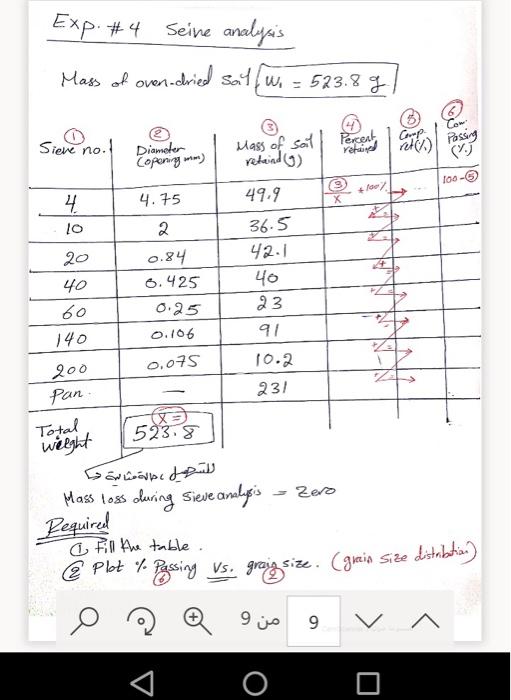 Exp. #4 Seive analysis
Mass of oven-dried soil W₁ = 523.8 g
① ② ③ ④ ⑤ ⑥
Sieve no. Diameter (opening mm) Mass of soil retaind (g) Percent retained ret (%) Com. Passing (%)
4 4.75 49.9 ③/X *100% ... 100-⑤
10 2 36.5
20 0.84 42.1
40 0.425 40
60 0.25 23
140 0.106 91
200 0.075 10.2
Pan. — 231
Total weight X = 523.8
Mass loss during sieve analysis = Zero
Required
① Fill the table.
② Plot % Passing Vs. grain size. (grain size distribution)
⑥ ②
9 من 9